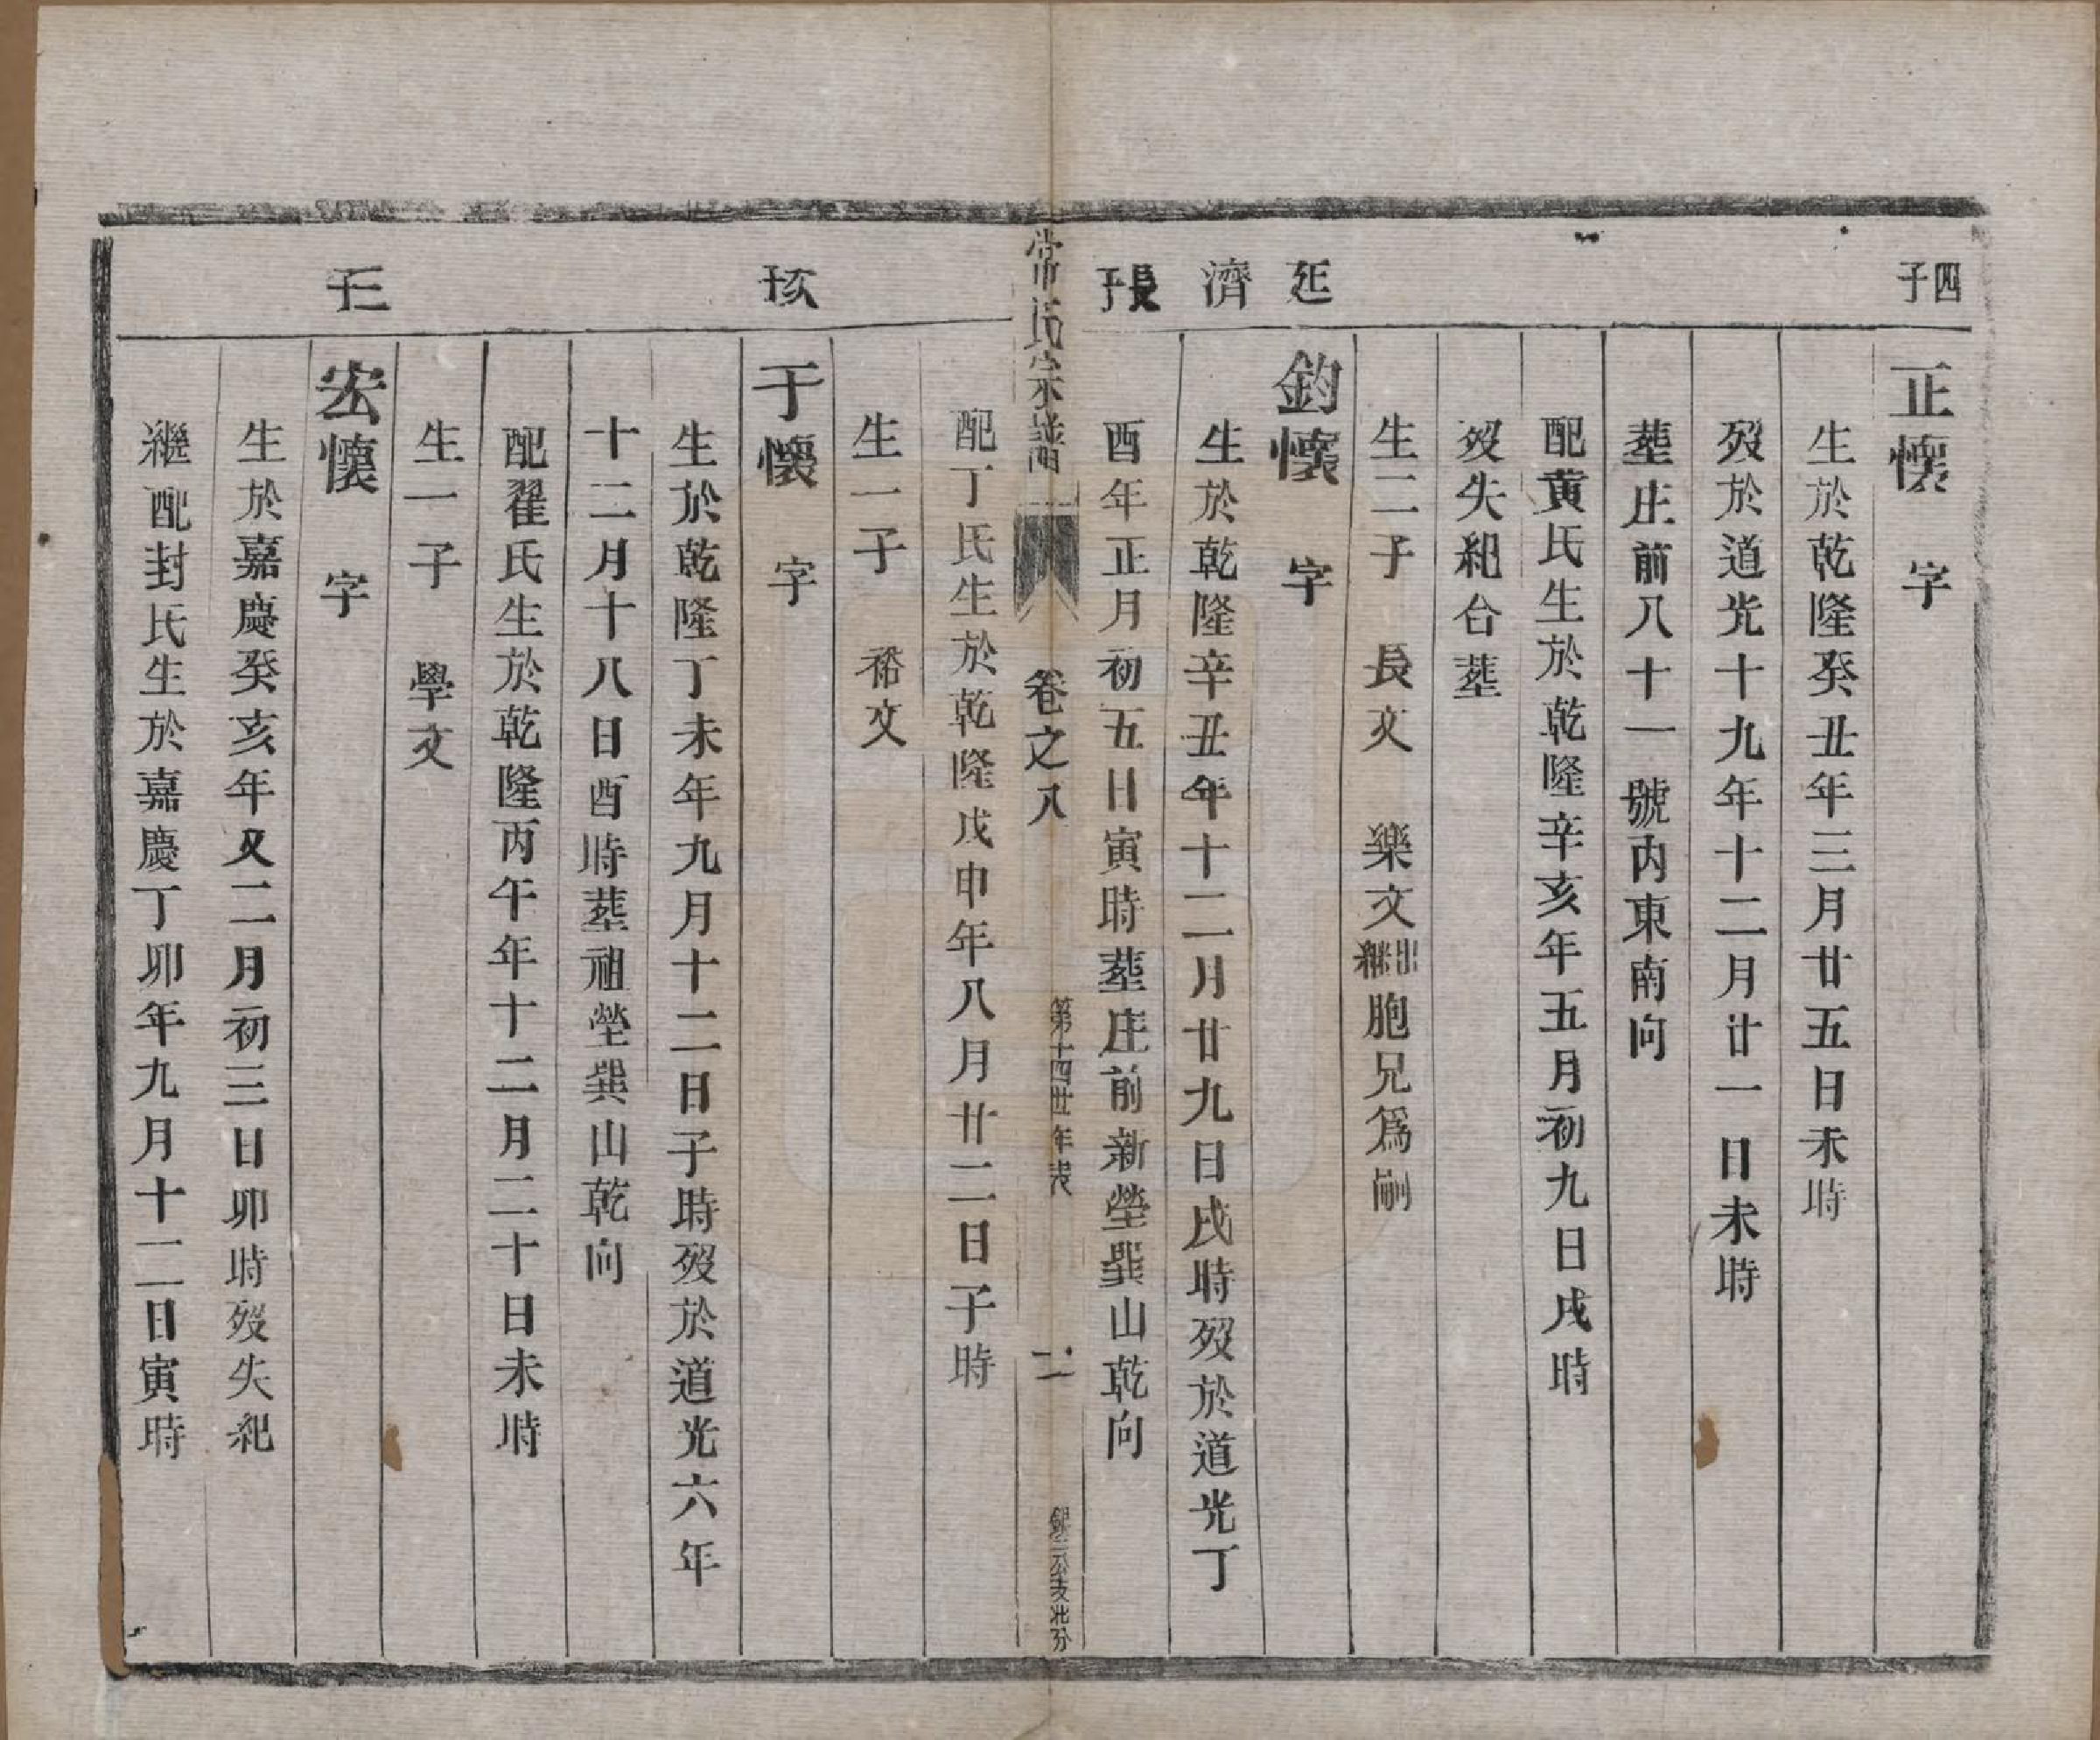 四子
正懷 字
生於乾隆癸丑年三月廿五日未時
歿於道光十九年十二月廿一日未時
塟庄前八十一號內東南向
配黄氏生於乾隆辛亥年五月初九日戌時
歿失紀合塟
生二子 長文 樂文出繼胞兄爲嗣
廷濟長子
鈞懷 字
生於乾隆辛丑年十二月廿九日戌時歿於道光丁
酉年正月初五日寅時塟庄前新塋巽山乾向
常氏宗譜
卷之八
第十四世年表
二
公支北分
配丁氏生於乾隆戊申年八月廿二日子時
生一子 裕文
次子
于懷 字
生於乾隆丁未年九月十二日子時歿於道光六年
十二月十八日酉時塟祖塋巽山乾向
配翟氏生於乾隆丙午年十二月二十日未時
生一子 學文
三子
宏懷 字
生於嘉慶癸亥年又二月初三日卯時歿失紀
繼配封氏生於嘉慶丁卯年九月十二日寅時